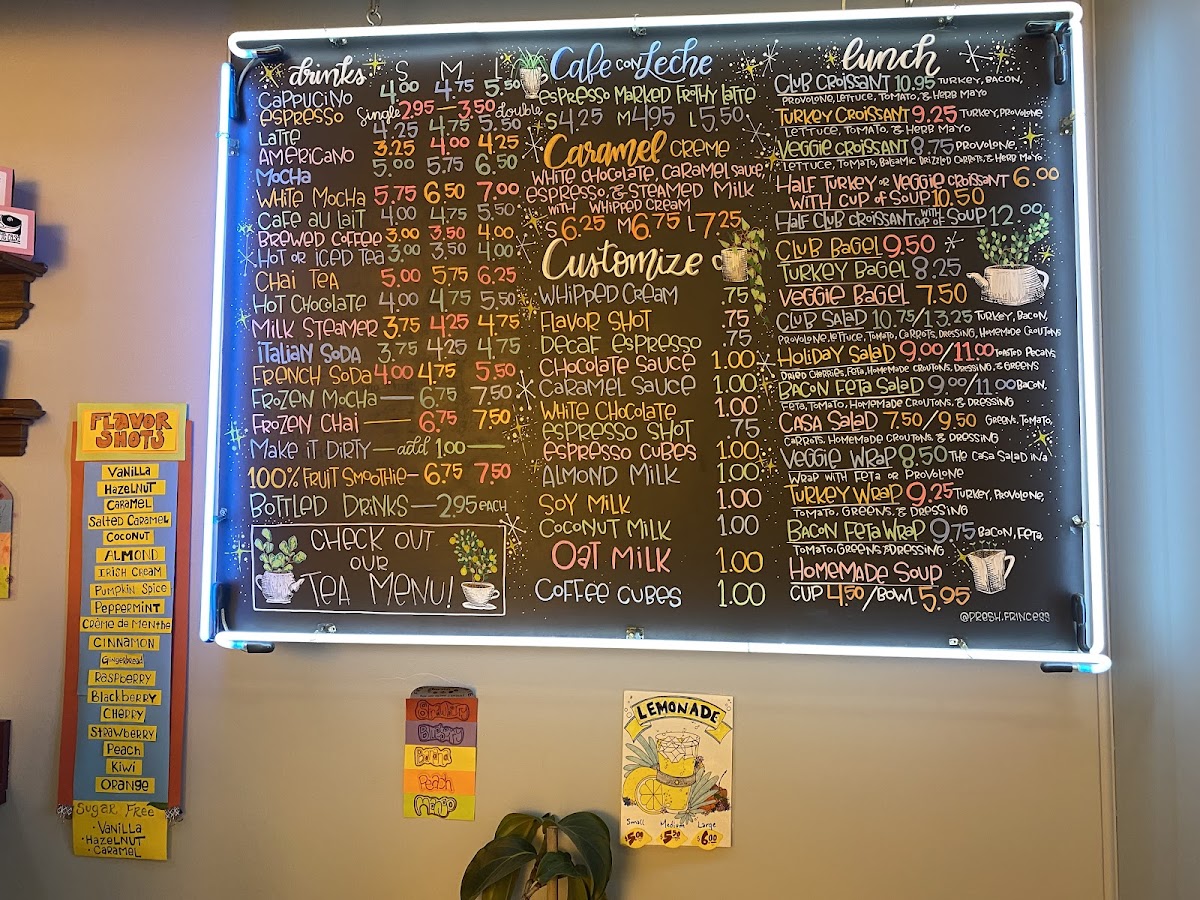 drinks S M L
CAPPUCINO 4.00 4.75 5.50
ESPRESSO Single 2.95 — 3.50 double
LATTE 4.25 4.75 5.50
AMERICANO 3.25 4.00 4.25
MOCHA 5.00 5.75 6.50
WHITE MOCHA 5.75 6.50 7.00
CAFE AU LAIT 4.00 4.75 5.50
BREWED COFFEE 3.00 3.50 4.00
HOT OR ICED TEA 3.00 3.50 4.00
CHAI TEA 5.00 5.75 6.25
HOT CHOCOLATE 4.00 4.75 5.50
MILK STEAMER 3.75 4.25 4.75
ITALIAN SODA 3.75 4.25 4.75
FRENCH SODA 4.00 4.75 5.50
FROZEN MOCHA — 6.75 7.50
FROZEN CHAI — 6.75 7.50
MAKE IT DIRTY — add 1.00 —
100% FRUIT SMOOTHIE — 6.75 7.50
BOTTLED DRINKS — 2.95 EACH
CHECK OUT
OUR
TEA MENU!
Cafe CON Leche
ESPRESSO MARKED FROTHY LATTE
S 4.25 M 4.95 L 5.50
Caramel CREME
WHITE CHOCOLATE, CARAMEL SAUCE,
ESPRESSO, & STEAMED MILK
WITH WHIPPED CREAM
S 6.25 M 6.75 L 7.25
Customize
WHIPPED CREAM .75
FLAVOR SHOT .75
DECAF ESPRESSO .75
CHOCOLATE SAUCE 1.00
CARAMEL SAUCE 1.00
WHITE CHOCOLATE 1.00
ESPRESSO SHOT .75
ESPRESSO CUBES 1.00
ALMOND MILK 1.00
SOY MILK 1.00
COCONUT MILK 1.00
OAT MILK 1.00
COFFEE CUBES 1.00
lunch
CLUB CROISSANT 10.95 TURKEY, BACON,
PROVOLONE, LETTUCE, TOMATO, & HERB MAYO
TURKEY CROISSANT 9.25 TURKEY, PROVOLONE,
LETTUCE, TOMATO, & HERB MAYO
VEGGIE CROISSANT 8.75 PROVOLONE,
LETTUCE, TOMATO, BALSAMIC DRIZZLED CARROTS, & HERB MAYO
HALF TURKEY OR VEGGIE CROISSANT 6.00
WITH CUP OF SOUP 10.50
HALF CLUB CROISSANT WITH CUP OF SOUP 12.00
CLUB BAGEL 9.50
TURKEY BAGEL 8.25
VEGGIE BAGEL 7.50
CLUB SALAD 10.75/13.25 TURKEY, BACON,
PROVOLONE, LETTUCE, TOMATO, CARROTS, DRESSING, HOMEMADE CROUTONS
HOLIDAY SALAD 9.00/11.00 TOASTED PECANS,
DRIED CHERRIES, FETA, HOMEMADE CROUTONS, DRESSING, & GREENS
BACON FETA SALAD 9.00/11.00 BACON,
FETA, TOMATO, HOMEMADE CROUTONS, & DRESSING
CASA SALAD 7.50/9.50 GREENS, TOMATO,
CARROTS, HOMEMADE CROUTONS & DRESSING
VEGGIE WRAP 8.50 THE CASA SALAD IN A
WRAP WITH FETA OR PROVOLONE
TURKEY WRAP 9.25 TURKEY, PROVOLONE,
TOMATO, GREENS, & DRESSING
BACON FETA WRAP 9.75 BACON, FETA,
TOMATO, GREENS & DRESSING
HOMEMADE SOUP
CUP 4.50/BOWL 5.95
@PRESH.PRINCESS
FLAVOR
SHOTS
VANILLA
HAZELNUT
CARAMEL
SALTED CARAMEL
COCONUT
ALMOND
IRISH CREAM
PUMPKIN SPICE
PEPPERMINT
CRÈME DE MENTHE
CINNAMON
GINGERBREAD
RASPBERRY
BLACKBERRY
CHERRY
STRAWBERRY
PEACH
KIWI
ORANGE
SUGAR FREE
• VANILLA
• HAZELNUT
• CARAMEL
Banana
Peach
Mango
LEMONADE
Small Medium Large
$5.00 $5.50 $6.00